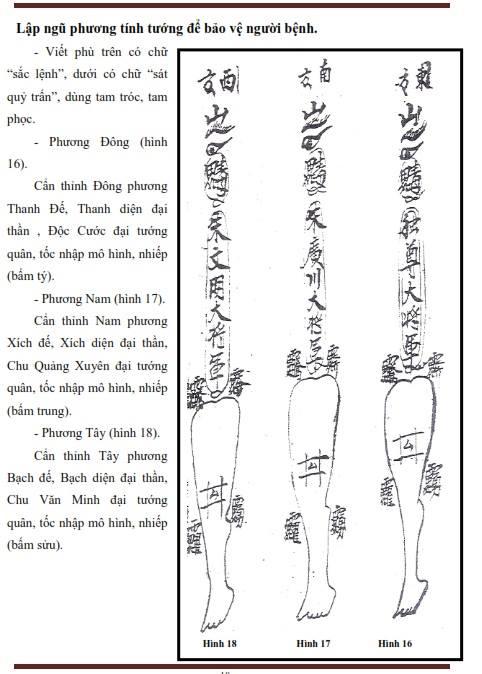 Lập ngũ phương tính tướng để bảo vệ người bệnh.
- Viết phù trên có chữ
“sắc lệnh”, dưới có chữ “sát
quỷ trấn”, dùng tam tróc, tam
phọc.
- Phương Đông (hình
16).
Cẩn thỉnh Đông phương
Thanh Đế, Thanh diện đại
thần , Độc Cước đại tướng
quân, tốc nhập mô hình, nhiếp
(bấm tý).
- Phương Nam (hình 17).
Cẩn thỉnh Nam phương
Xích đế, Xích diện đại thần,
Chu Quảng Xuyên đại tướng
quân, tốc nhập mô hình, nhiếp
(bấm trung).
- Phương Tây (hình 18).
Cẩn thỉnh Tây phương
Bạch đế, Bạch diện đại thần,
Chu Văn Minh đại tướng
quân, tốc nhập mô hình, nhiếp
(bấm sửu).
方西
方南
方東
朱文
大將軍
朱廣川大將軍
尊大將軍
Hình 18
Hình 17
Hình 16